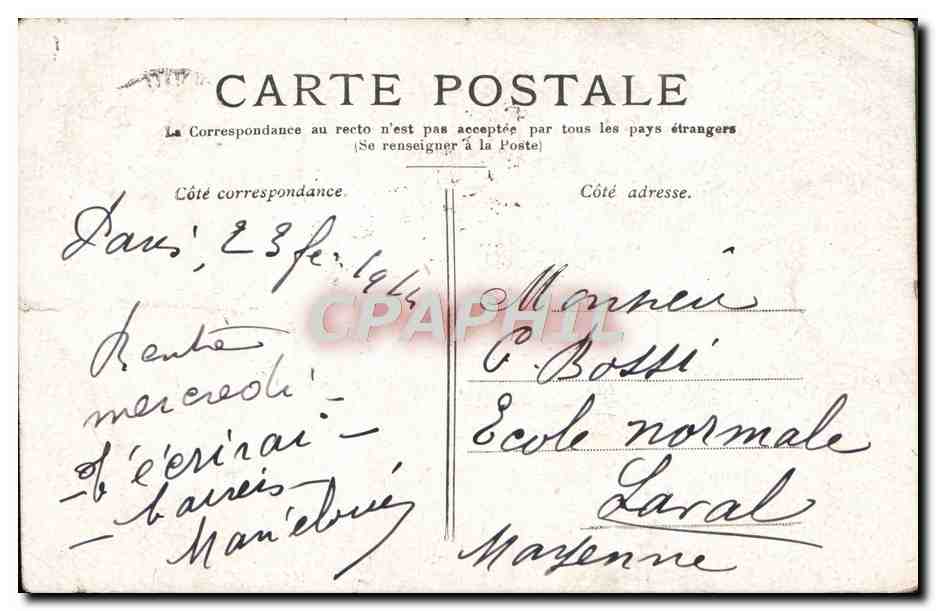 CARTE POSTALE
La Correspondance au recto n'est pas acceptée par tous les pays étrangers
(Se renseigner à la Poste)
Côté correspondance.
Paris, 23 fev. 1914
Rentre
mercredi -
- t'écrirai -
- baisers -
Côté adresse.
Monsieur
Bossi
Ecole normale
Laval
Mayenne
CPAPHIL